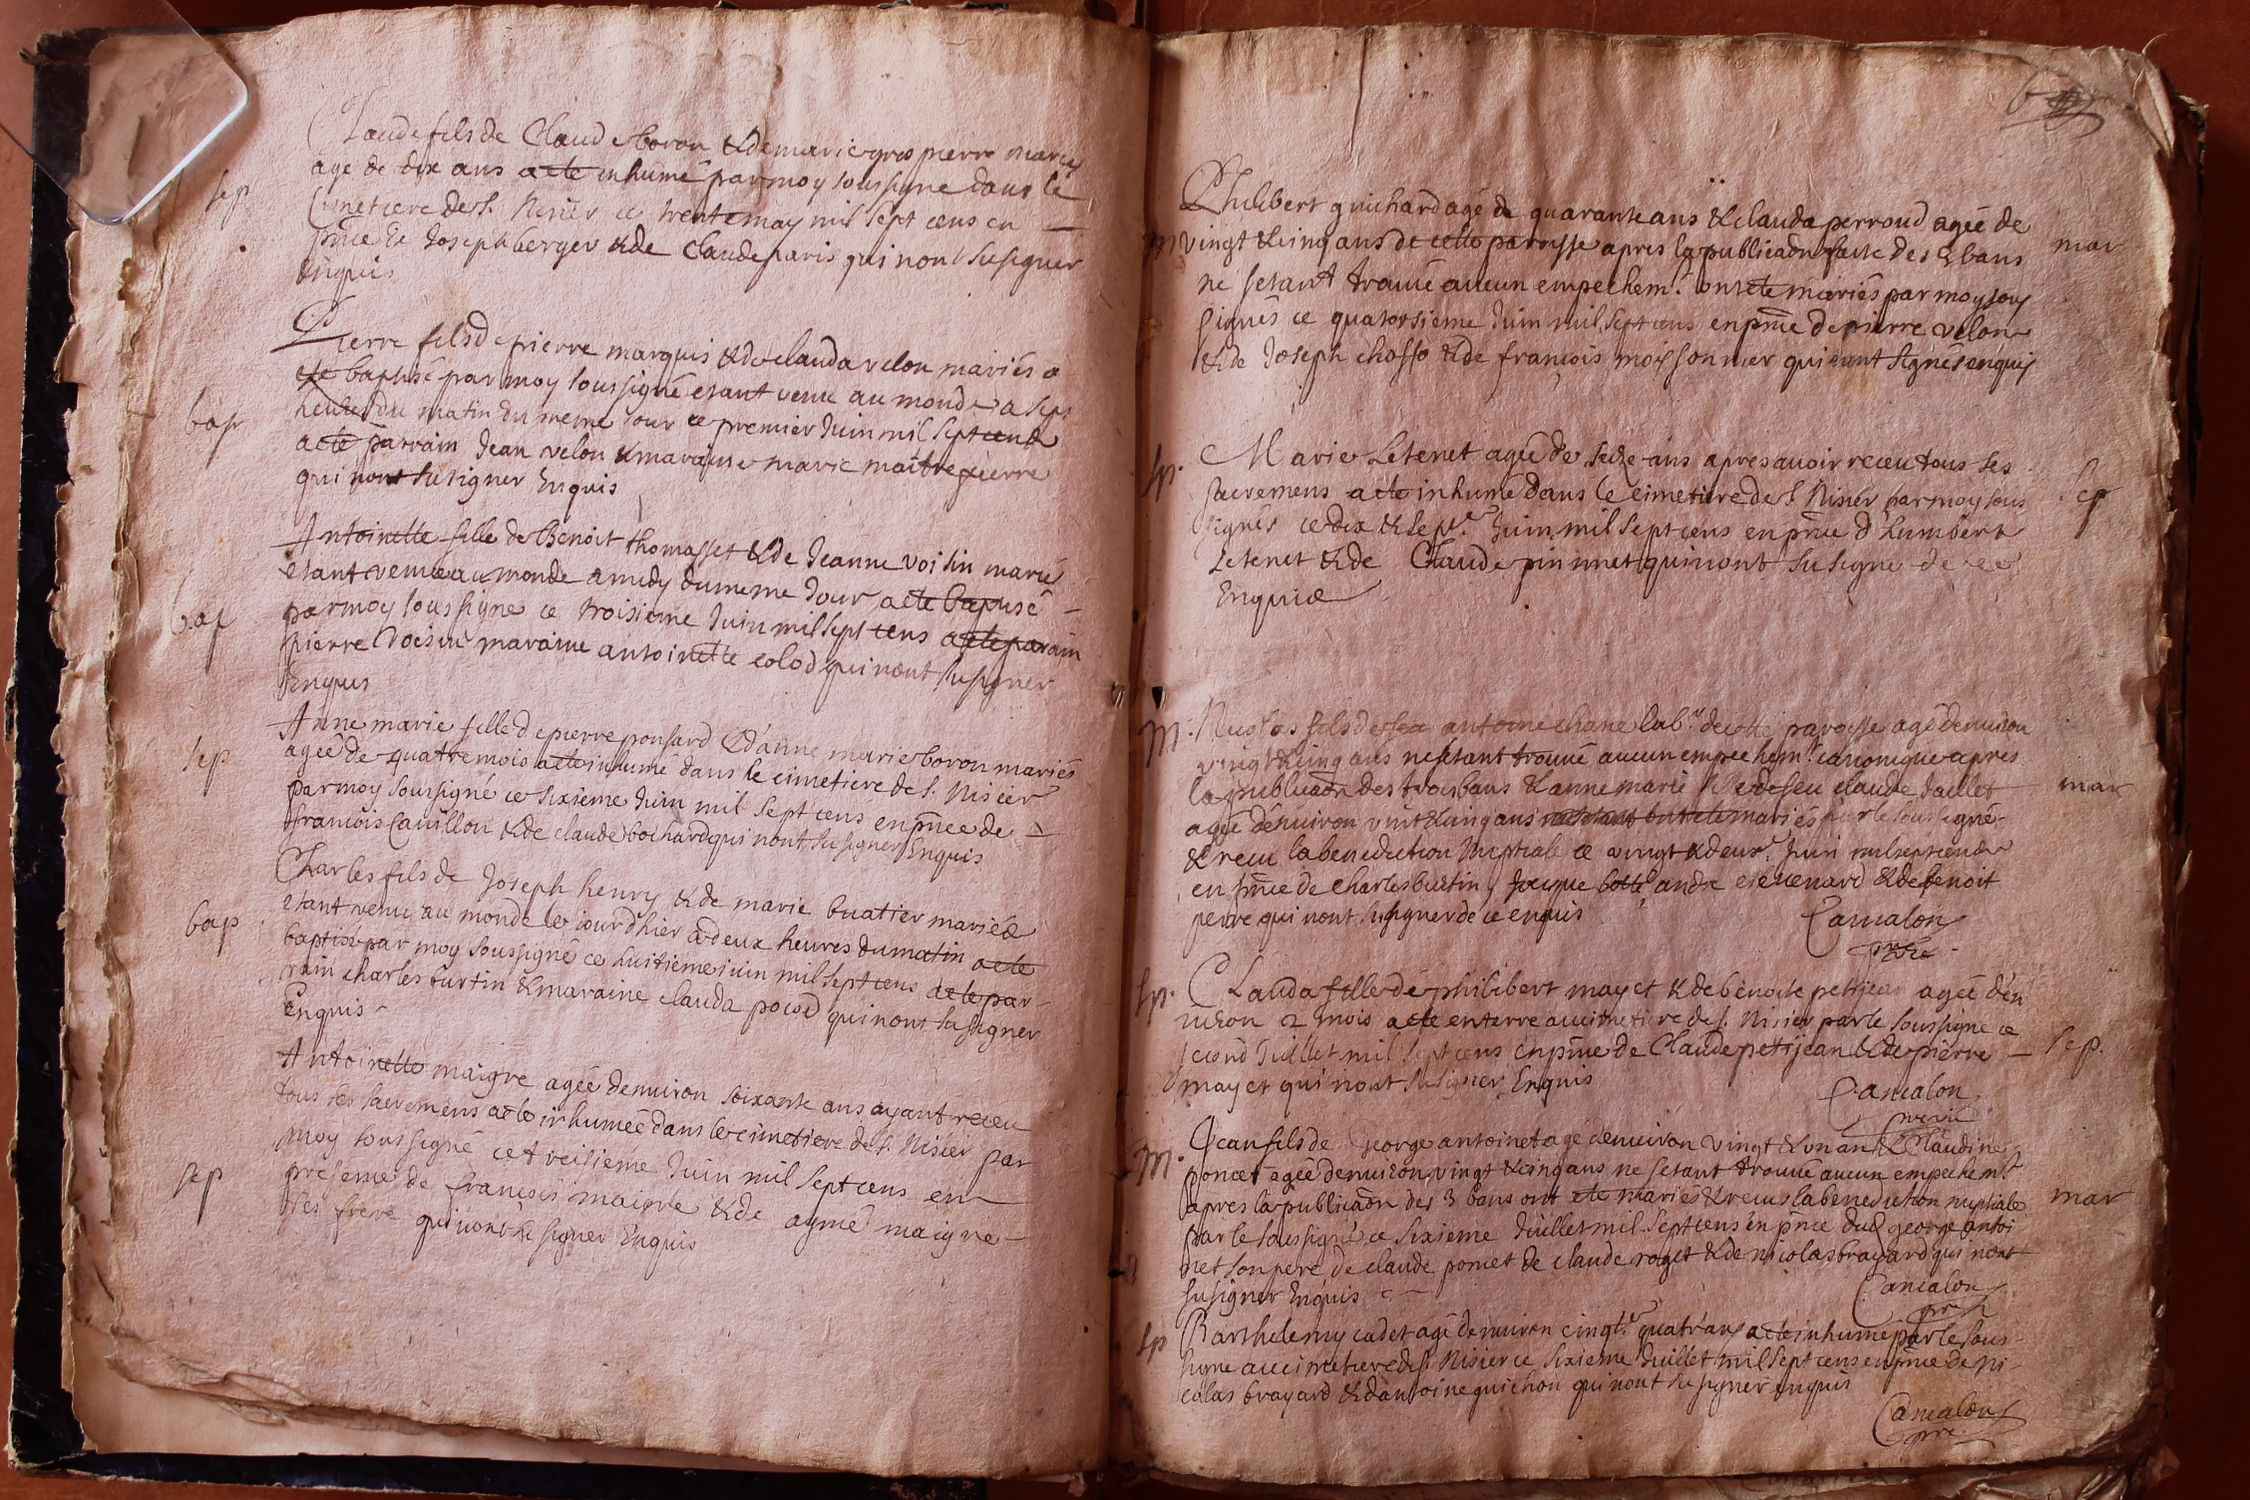 Claude fils de Claude boron & de marie gros pierre mariés
sep
age de dix ans a ete inhumé par moy soussigne dans le
Cimetiere de St. Nisier ce trente may mil sept cens en
pnce de Joseph berger & de Claude paris qui nont su signer
Enquis
Pierre fils de pierre marquis & de clauda velon mariés a
ete baptisé par moy soussigné etant venu au monde a sept
bap
heures du matin du meme jour ce premier Juin mil sept cens
a ete parrain Jean velon & maraine marie maitrepierre
qui nont su signer Enquis
Antoinette fille de Benoit thomasset & de Jeanne voisin mariés
etant venue au monde a midy du meme Jour a ete baptisé
bap
par moy soussigne ce troisieme Juin mil sept cens a ete parain
pierre Voisin maraine antoinette colod qui nont su signer
Enquis
Anne marie fille de pierre ponsard & d'anne marie boron mariés
sep
agée de quatre mois a ete inhumé dans le cimetiere de St. Nisier
par moy soussigné ce sixieme Juin mil sept cens en pnce de
francois Cavillon & de claude bochard qui nont su signer Enquis
Charles fils de Joseph henry & de marie buatier mariés
bap
etant venu au monde le jour d'hier a deux heures du matin a ete
baptisé par moy soussigné ce huitieme juin mil sept cens a ete par
rain charles burtin & maraine clauda poisd qui nont su signer
Enquis
Antoinette maigre agée denviron soixante ans ayant receu
tous ses sacremens a ete inhumée dans le cimetiere de St. Nisier par
sep
moy soussigné ce treisieme Juin mil sept cens en
presence de francois maigre & de aymé maigre
ses frere qui nont su signer Enquis
Philibert guichard agé de quarante ans & clauda perroud agée de
m
vingt & cinq ans de cette paroisse apres la publicaon faite des 3 bans
mar
ne setant trouué aucun empechemt. ont ete mariés par moy sous
signés ce quatorsieme Juin mil sept cens en pnce de pierre velon
& de Joseph chosso & de francois moissonnier qui nont signés enquis
sp.
Marie Letenet agée de seize ans apres auoir receu tous ses
sep
sacremens a ete inhumé dans le cimetiere de St Nisier par moy sous
signés ce dix & sept.e Juin mil sept cens en pnce d'humbert
Letenet & de Claude pin nnet qui nont su signe de ce
Enquis
m.
Nicolas fils de feu antoine chane lab.r de cette paroisse agé denuiron
vingt & cinq ans ne setant trouué aucun empechemt. canonique apres
la publicaon des trois bans & anne marie fille de feu claude Jaillet
mar
agée denuiron vint & cinq ans ont ete mariés par le soussigné
& receu la benediction nuptiale ce vingt & deux.e Juin mil sept cens
en pnce de Charles burtin, andre eteuenard & de benoit
perre qui nont su signer de ce enquis
Camalon
sp.
Clauda fille de philibert mayet & de benoite petitjean agée den
uiron 2 mois a ete enterre au cimetiere de St. Nisier par le soussigne ce
second Juillet mil sept cens en pnce de Claude petitjean & de pierre
sep.
mayet qui nont su signer Enquis
Camalon
m.
Jean fils de George antoinet age denuiron vingt & un an & Claudine
poncet agée denuiron vingt & cinq ans ne setant trouué aucun empechemt
apres la publicaon des 3 bans ont ete mariés & receus la benediction nuptiale
mar
par le soussigné ce sixieme Juillet mil sept cens en pnce dud george antoi
net son pere de claude poncet de claude roget & de nicolas brayard qui nont
su signer Enquis
Camalon
sp
Barthelemy cadet agé denuiron cinqt.e quatr'ans a ete inhumé par le sous
signe au cimetiere de St Nisier ce sixieme Juillet mil sept cens en pnce de ni
colas brayard & d'antoine guichon qui nont su signer enquis
Camalon